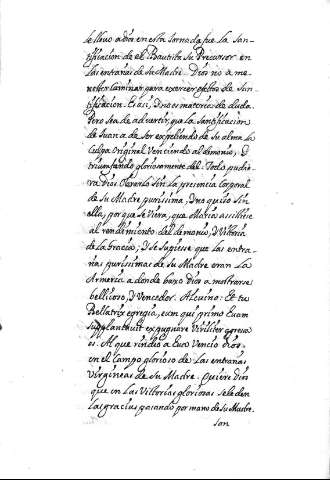 se llevo a Dios en esta Jornada fue la San-
tificacion de el Bautista su Precursor en
las entrañas de su Madre. Dios no a me-
nester Caminar para exercer efectos de San-
tificacion. Es asi, y no es materia de duda.
Pero sea de advertir, que la Santificacion
de Juan a de ser expeliendo de su alma la
Culpa Original Venciendo al demonio, y
triumfando gloriosamente del. Todo pudie-
ra Dios Obrarlo sin la presencia Corporal
de su Madre purissima, y no quiso sin
ella, por que se Viera, que Maria assistiese
al rendimiento del demonio, y Vitoria
de la Gracia, y se supiesse que las entra-
ñas purissimas de su Madre eran la
Armeria a donde baxo Dios a mostrarse
bellicoso, y Vencedor. Alcuino: Et tu
Bellatrix egregia, eum qui primo Euam
supplantauit expugnare Viriliter egressa
es. Al que rindio a Eva Vencio Dios
en el Campo glorioso de las entrañas
Virgineas de su Madre. quiere Dios
que en las Vittorias gloriosas se le den
las gracias pasando por mano de su Madre.
son